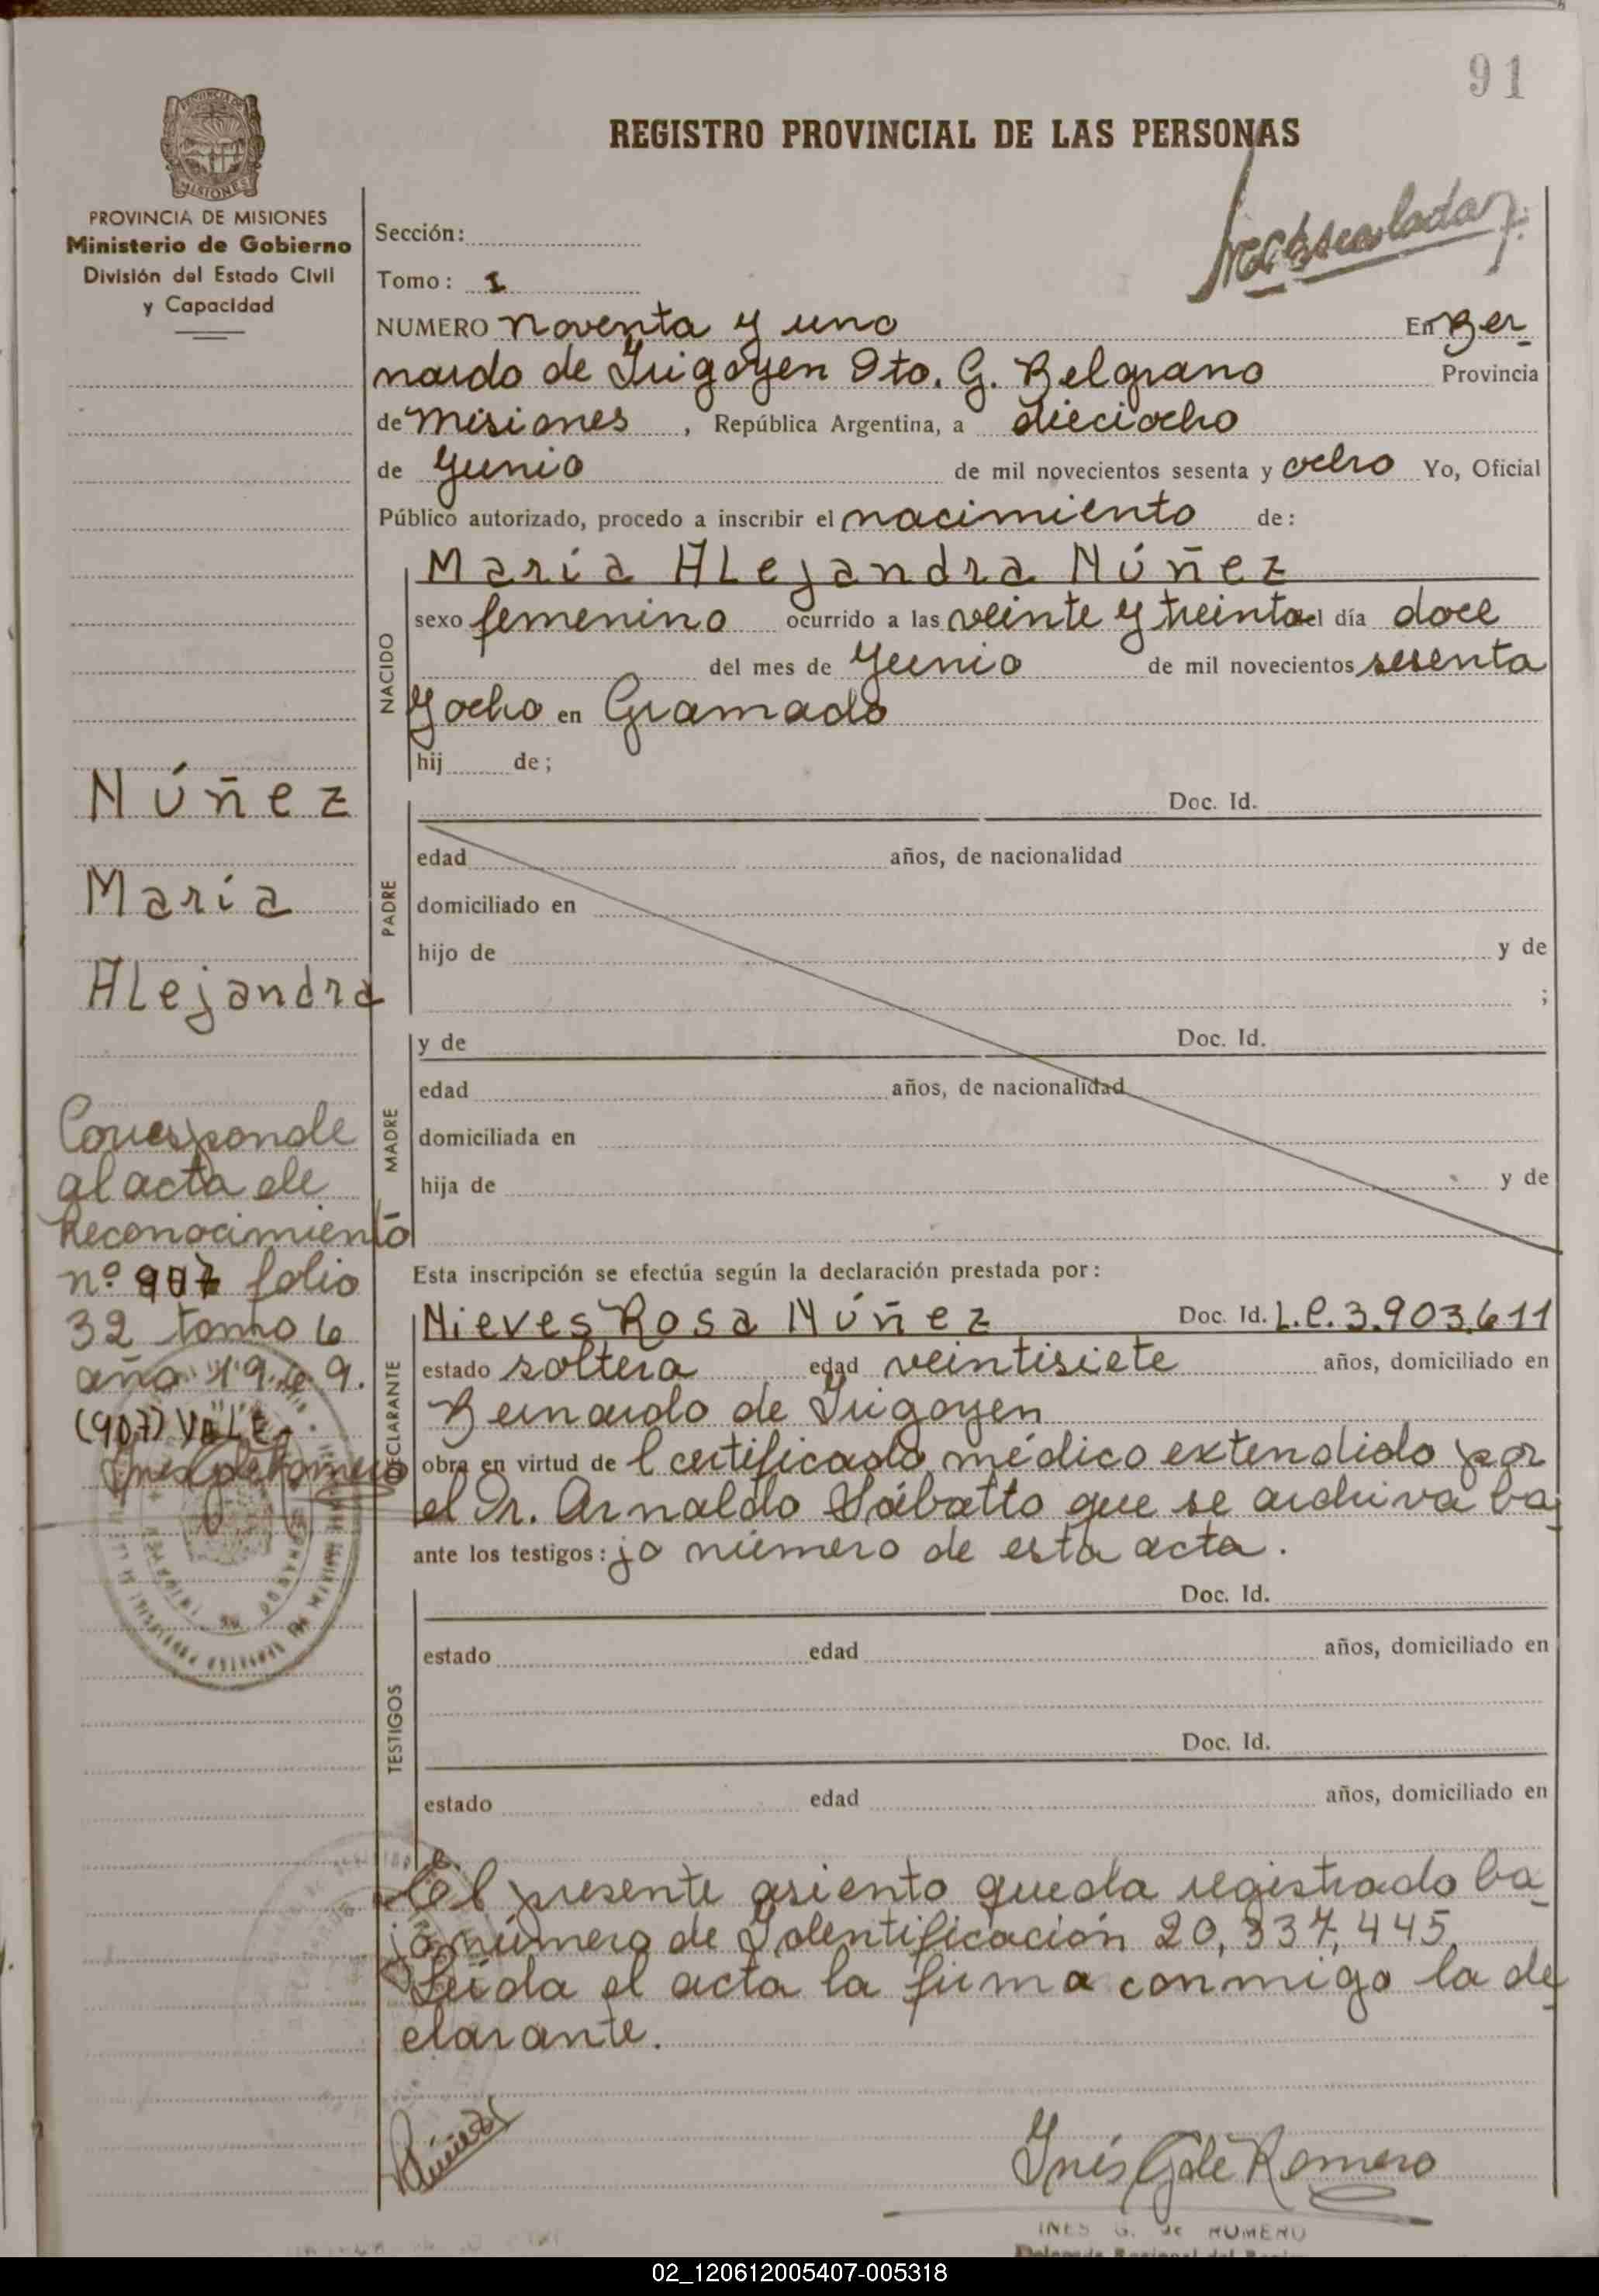 91
REGISTRO PROVINCIAL DE LAS PERSONAS
PROVINCIA DE MISIONES
Ministerio de Gobierno
División del Estado Civil
y Capacidad
Sección:
Tomo: I
NUMERO noventa y uno En Ber
nardo de Irigoyen Dto. G. Belgrano Provincia
de Misiones, República Argentina, a dieciocho
de Junio de mil novecientos sesenta y ocho Yo, Oficial
Público autorizado, procedo a inscribir el nacimiento de:
NACIDO
María Alejandra Núñez
sexo femenino ocurrido a las veinte y treinta el día doce
del mes de Junio de mil novecientos sesenta
y ocho en Gramado
hij de;
Núñez
María
Alejandra
PADRE
Doc. Id.
edad años, de nacionalidad
domiciliado en
hijo de y de
;
MADRE
y de Doc. Id.
edad años, de nacionalidad
domiciliada en
hija de y de
Corresponde
al acta de
Reconocimiento
nº 907 folio
32 tomo 6
año 1969.
(907) VALE
Inés G de Romero
Esta inscripción se efectúa según la declaración prestada por:
DECLARANTE
Nieves Rosa Núñez Doc. Id. L.C. 3.903.611
estado soltera edad veintisiete años, domiciliado en
Bernardo de Irigoyen
obra en virtud de l certificado médico extendido por
el Dr. Arnaldo Sábatto que se archiva ba
ante los testigos: jo número de esta acta.
TESTIGOS
Doc. Id.
estado edad años, domiciliado en
Doc. Id.
estado edad años, domiciliado en
El presente asiento queda registrado ba
jo número de Identificación 20,337,445.
Leída el acta la firma conmigo la de
clarante.
Inés G de Romero
INES G. de ROMERO
02_120612005407-005318